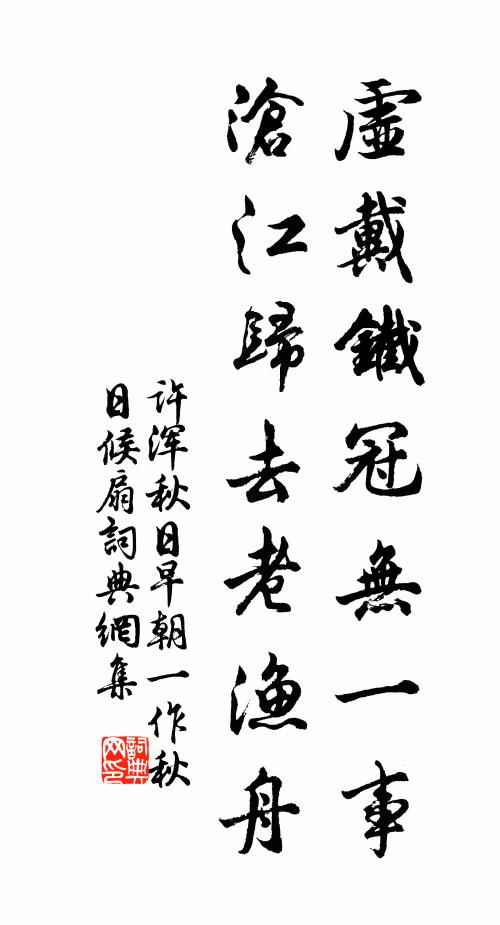 虛戴鐵冠無一事
滄江歸去老漁舟
许渾秋日早朝一作秋
日候扇詞典網集
詞典
网印